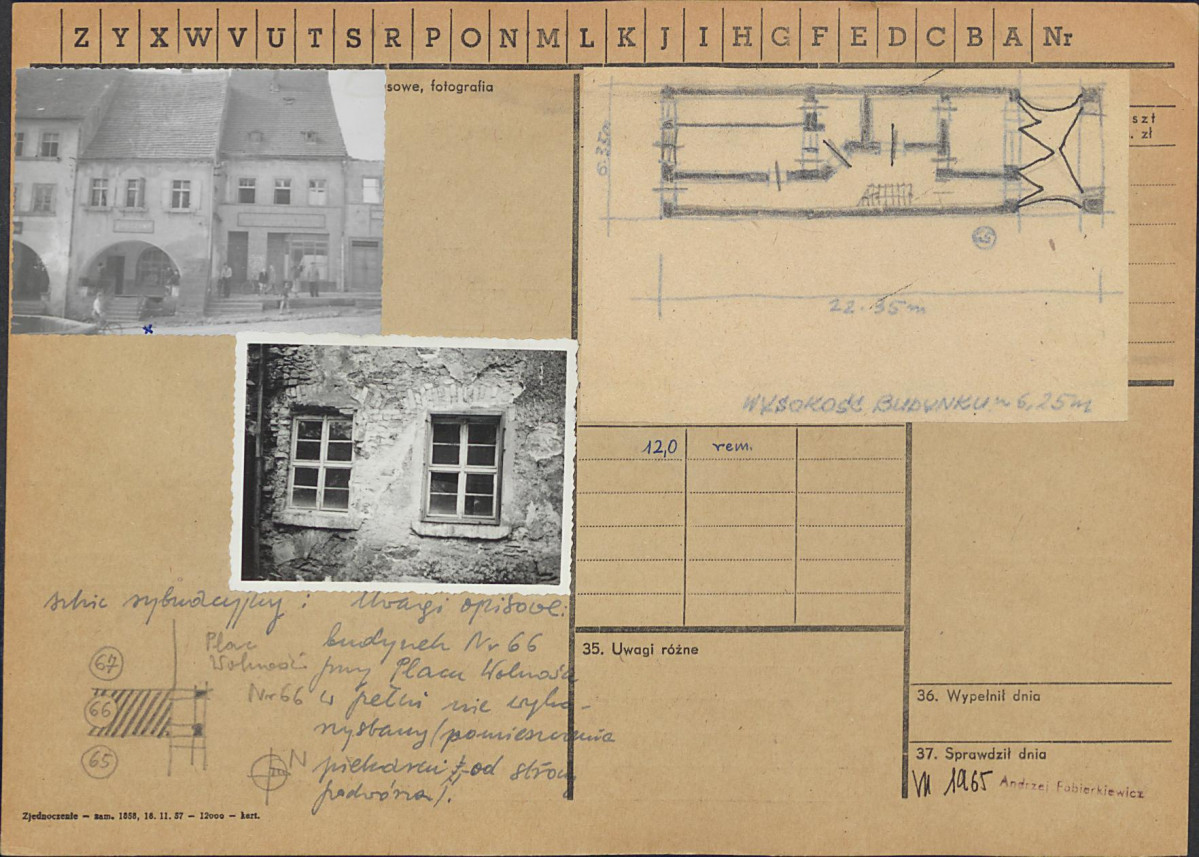 Z Y X W V U T S R P O N M L K J I H G F E D C B A Nr
sowe, fotografia
szt
. zł
6.35m
65
22.35m
WYSOKOŚĆ BUDYNKU ~ 6,25m
12,0 rem.
szkic sytuacyjny :
Uwagi opisowe:
Plac
Wolności
Nr 66
67
66
65
N
budynek Nr 66
przy Placu Wolności
w pełni nie wyko-
rzystany (pomieszczenia
piekarni od stron
podwórza).
35. Uwagi różne
36. Wypełnił dnia
37. Sprawdził dnia
VII 1965 Andrzej Fabierkiewicz
Zjednoczenie — zam. 1858, 16. 11. 57 — 12000 — kart.